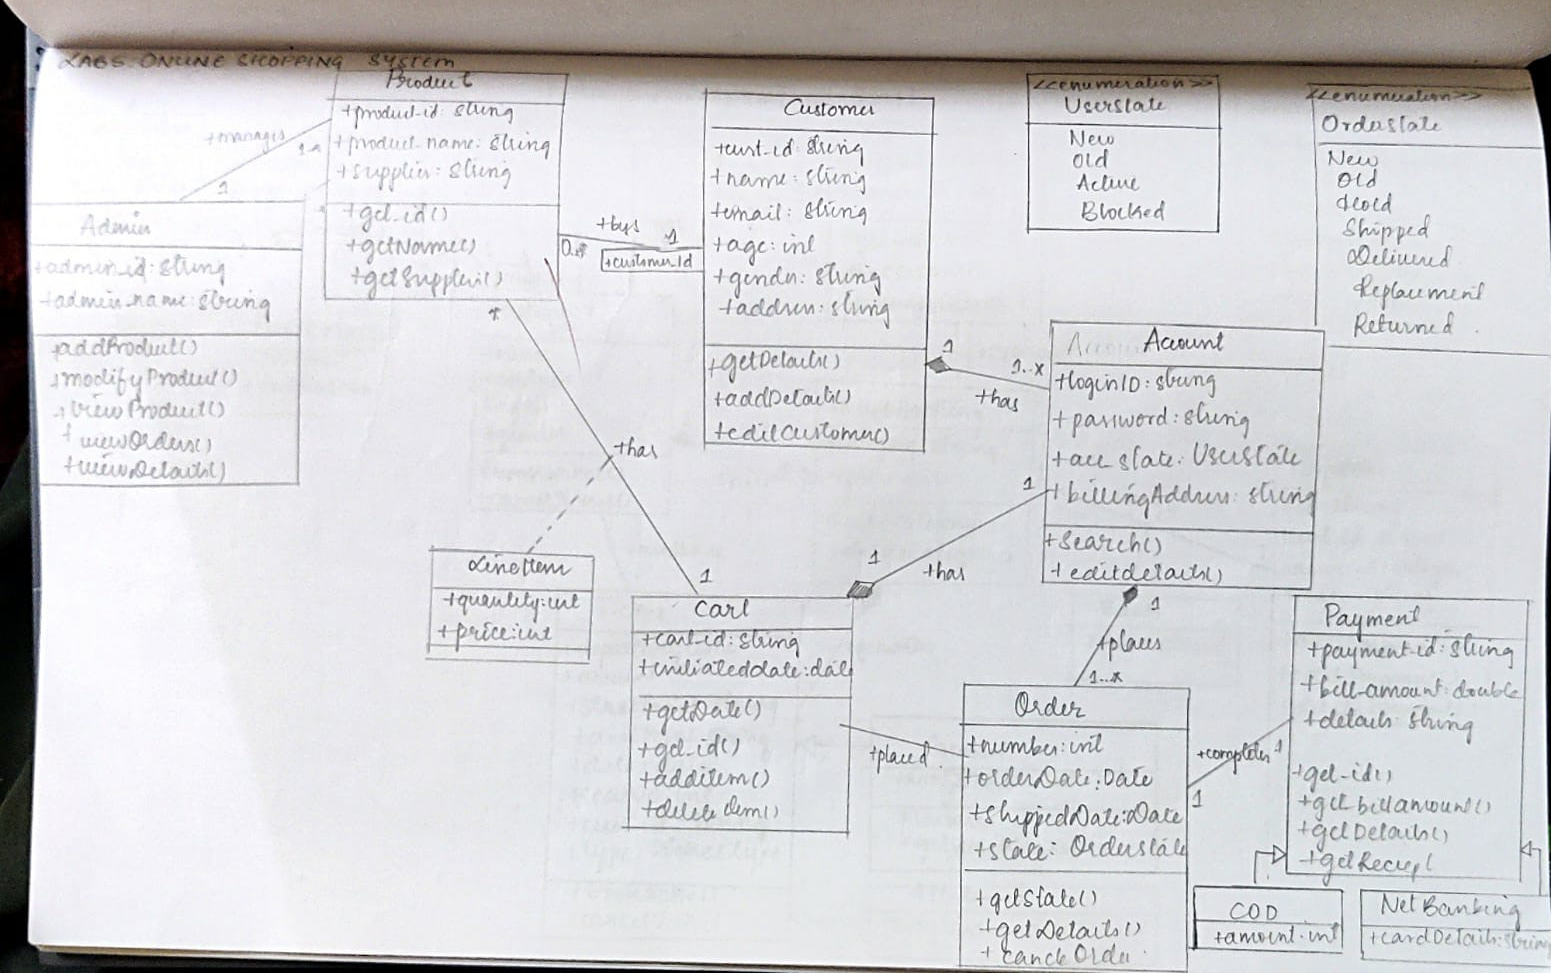 LAB5. ONLINE SHOPPING SYSTEM
Product
+product-id: string
+product-name: string
+supplier: string
+get-id()
+getName()
+getSupplier()
+manages
1
Admin
+admin-id: string
+admin-name: string
+addProduct()
+modifyProduct()
+viewProduct()
+viewOrders()
+viewDetails()
+buys
0..*
1
+customerId
Customer
+cust-id: string
+name: string
+email: string
+age: int
+gender: string
+address: string
+getDetails()
+addDetails()
+editCustomer()
<<enumeration>>
UserState
New
Old
Active
Blocked
<<enumeration>>
OrderState
New
Old
Hold
Shipped
Delivered
Replacement
Returned
1
1..*
+has
Account
+loginID: string
+password: string
+acc_state: UserState
+billingAddress: string
+search()
+editdetails()
*
+has
1
LineItem
+quantity:int
+price:int
1
1
+has
Cart
+cart-id: string
+initiatedDate: date
+getDate()
+get-id()
+additem()
+delete item()
+placed
1
+places
1..*
Order
+number: int
+orderDate: Date
+shippedDate: Date
+state: Orderstate
+getState()
+getDetails()
+cancelOrder
+completes
1
1
Payment
+payment-id: string
+bill-amount: double
+details: string
+get-id()
+get billamount()
+getDetails()
+getReciept
COD
+amount: int
NetBanking
+cardDetails: string